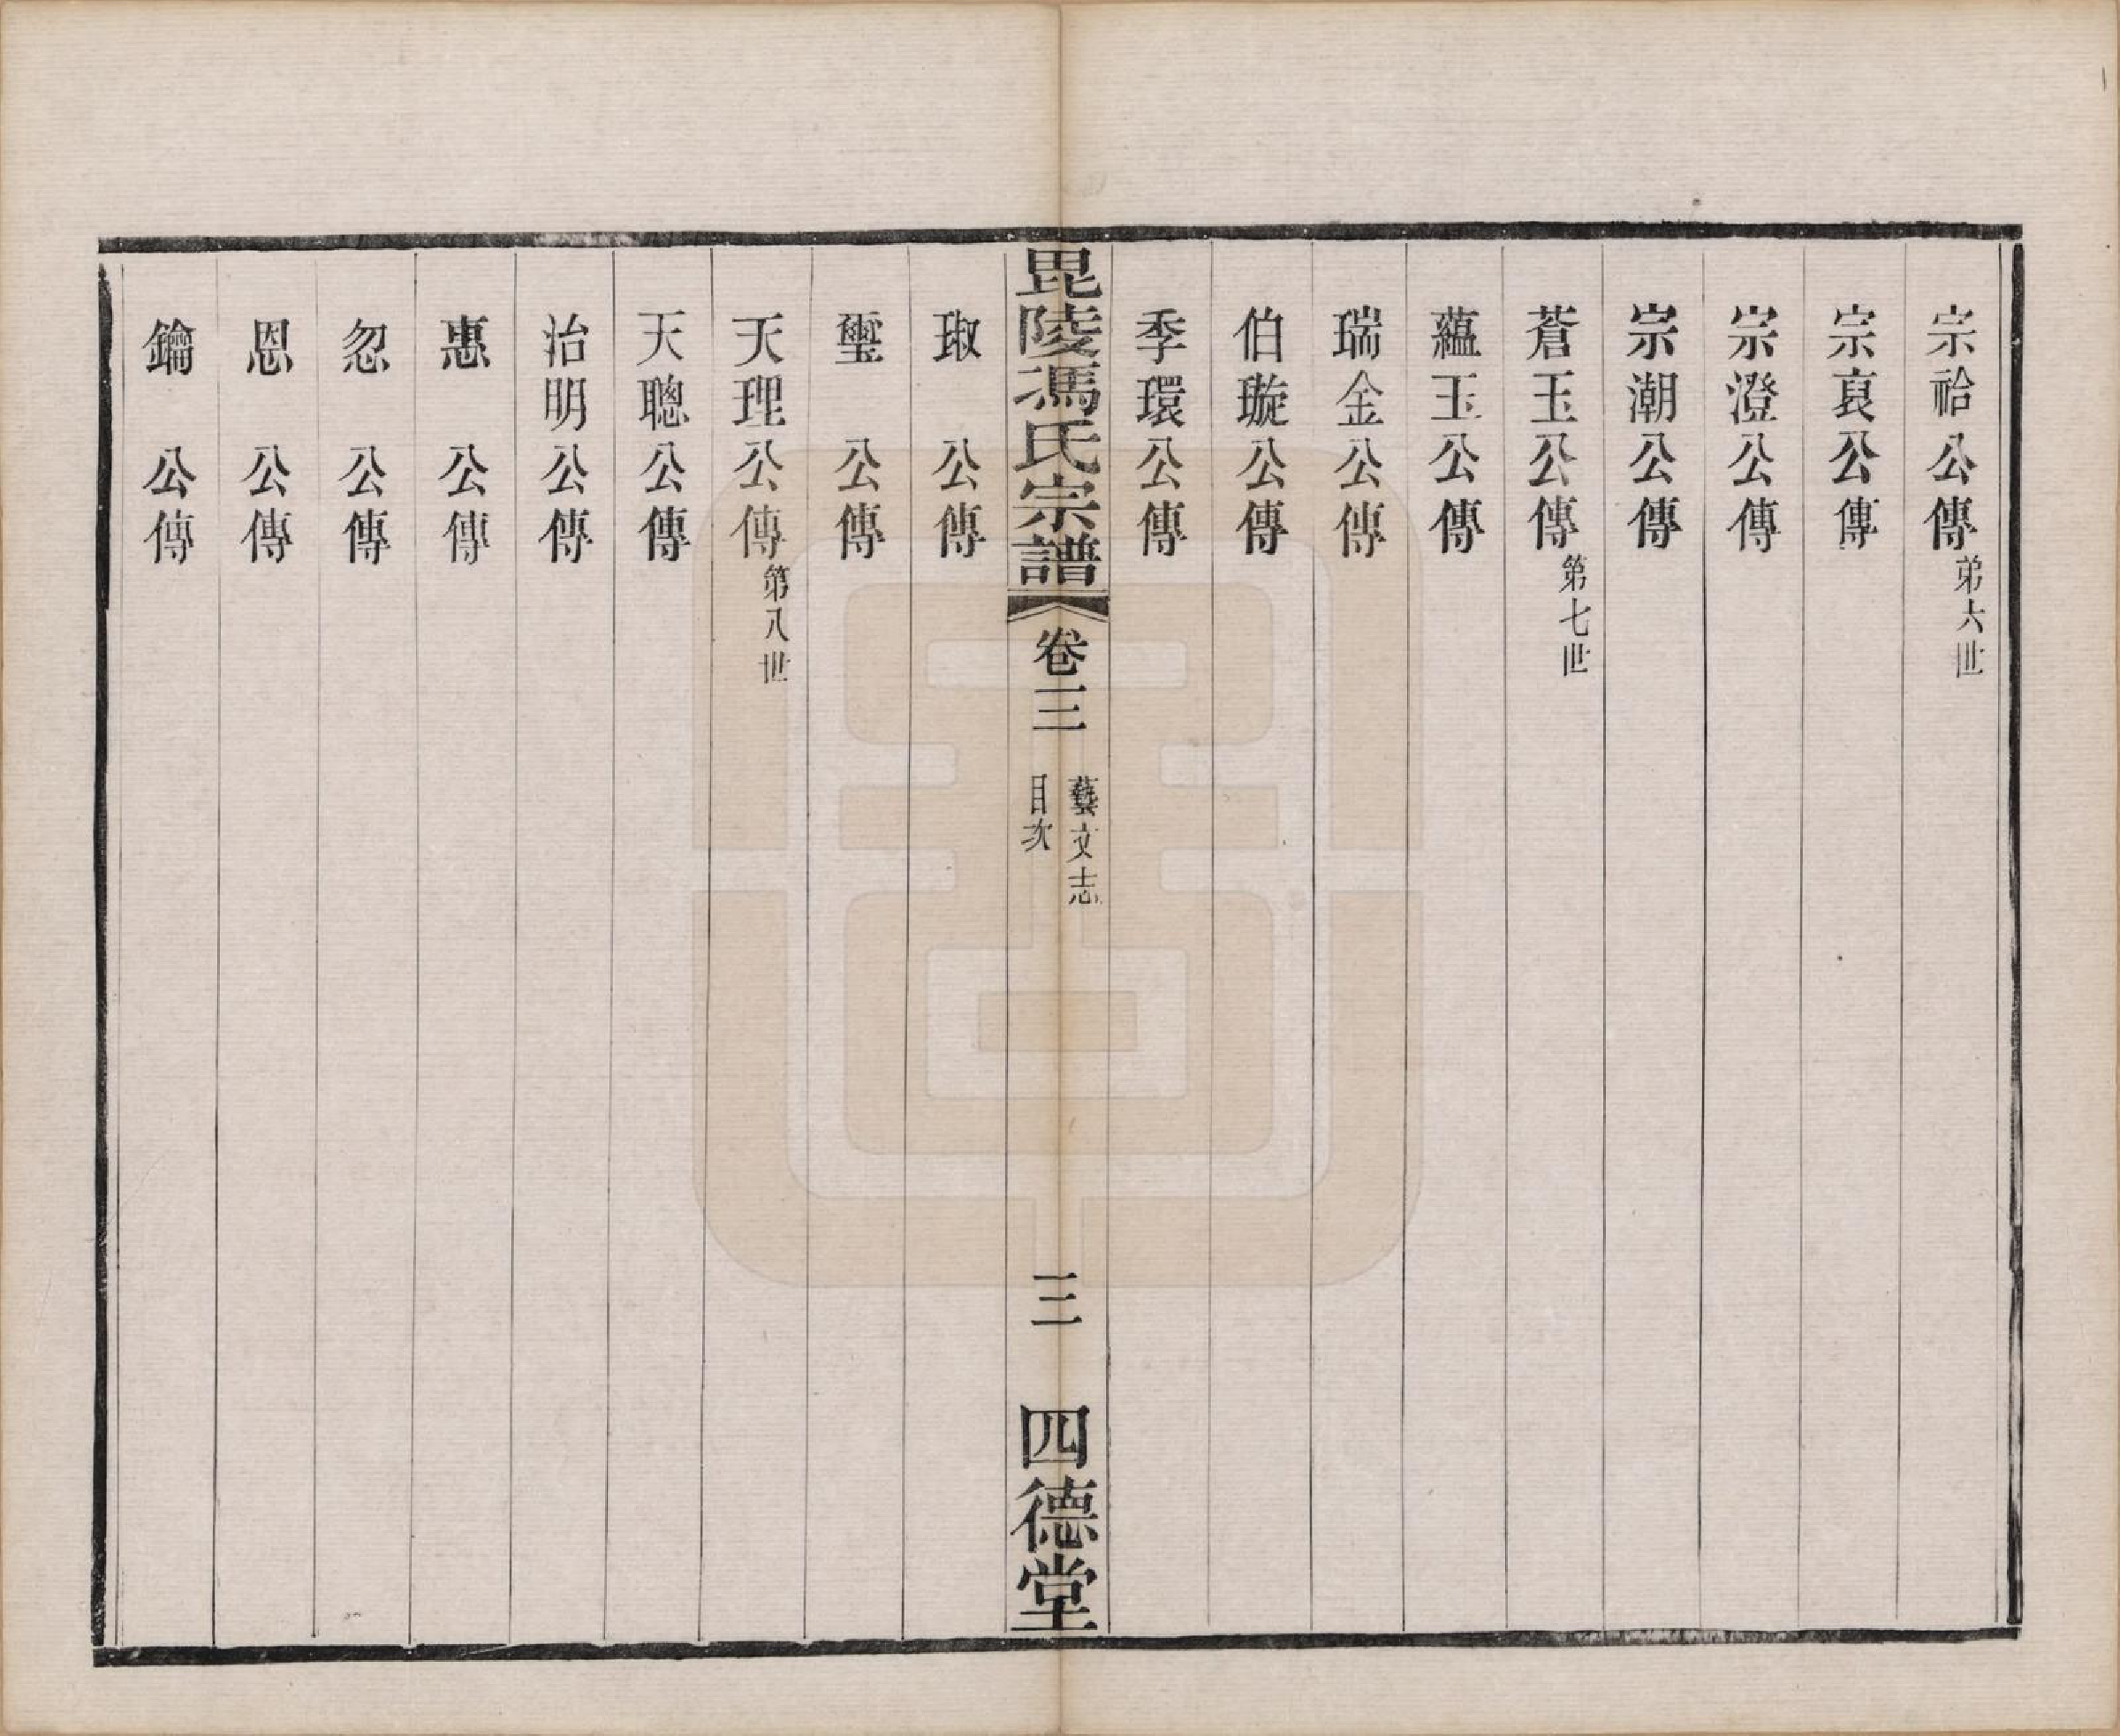 宗祫公傳弟六世
宗裒公傳
宗澄公傳
宗潮公傳
蒼玉公傳第七世
蘊玉公傳
瑞金公傳
伯璇公傳
季環公傳
毘陵馮氏宗譜
卷三
藝文志
目次
三
四德堂
琡 公傳
璽 公傳
天理公傳第八世
天聰公傳
治明公傳
惠 公傳
忽 公傳
恩 公傳
鑰 公傳